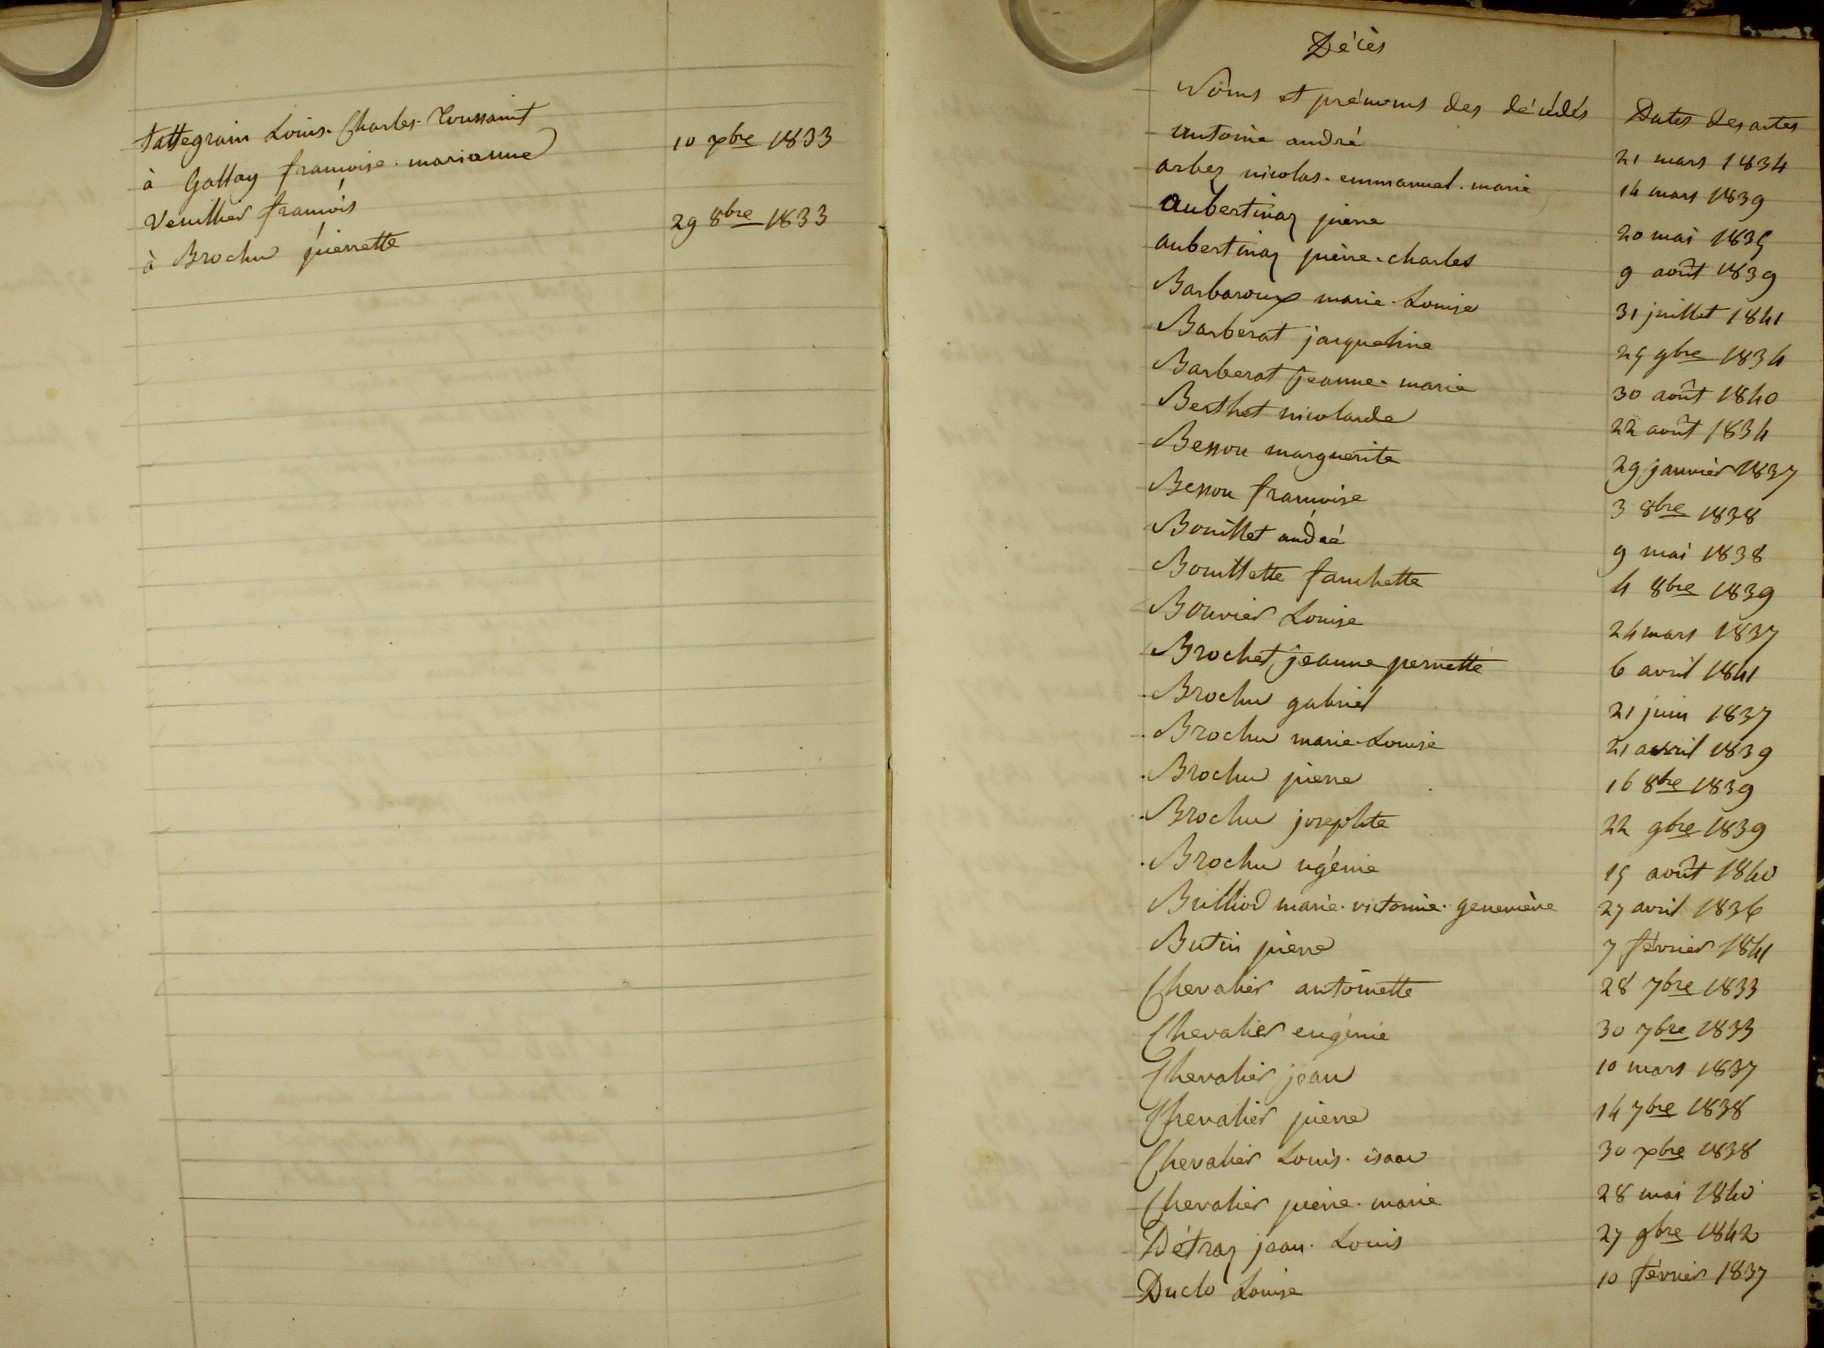 Tattegrain Louis. Charles. Toussaint
à Gallay francoise. marianne 10 xbre 1833
Veuillier francois
à Brochu pierrette 29 8bre 1833
Décès
Noms et prénoms des décédés Dates des actes
antoine andré 21 mars 1834
arbez nicolas. emmanuel. marie 14 mars 1839
aubertinaz pierre 20 mai 1839
aubertinaz pierre. charles 9 août 1839
Barbaroux marie. Louise 31 juillet 1841
Barberat jacqueline 25 9bre 1834
Barberat jeanne. marie 30 août 1840
Berthet nicolarde 22 août 1834
Besson marguerite 29 janvier 1837
Besson francoise 3 8bre 1838
Bouillet andré 9 mai 1838
Bouillette fanchette 4 8bre 1839
Bouvier Louise 24 mars 1837
Brochet, jeanne pernette 6 avril 1841
Brochu gabriel 21 juin 1837
Brochu marie-Louise 21 avril 1839
Brochu pierre 16 8bre 1839
Brochu josephte 22 9bre 1839
Brochu ugénie 15 août 1840
Bulliod marie. victorine. geneviève 27 avril 1836
Butin pierre 7 février 1841
Chevalier antoinette 28 7bre 1833
Chevalier eugénie 30 7bre 1833
Chevalier jean 10 mars 1837
Chevalier pierre 14 7bre 1838
Chevalier Louis. isaac 30 xbre 1838
Chevalier pierre. marie 28 mai 1840
Détraz jean. Louis 27 9bre 1842
Duclo Louise 10 février 1837